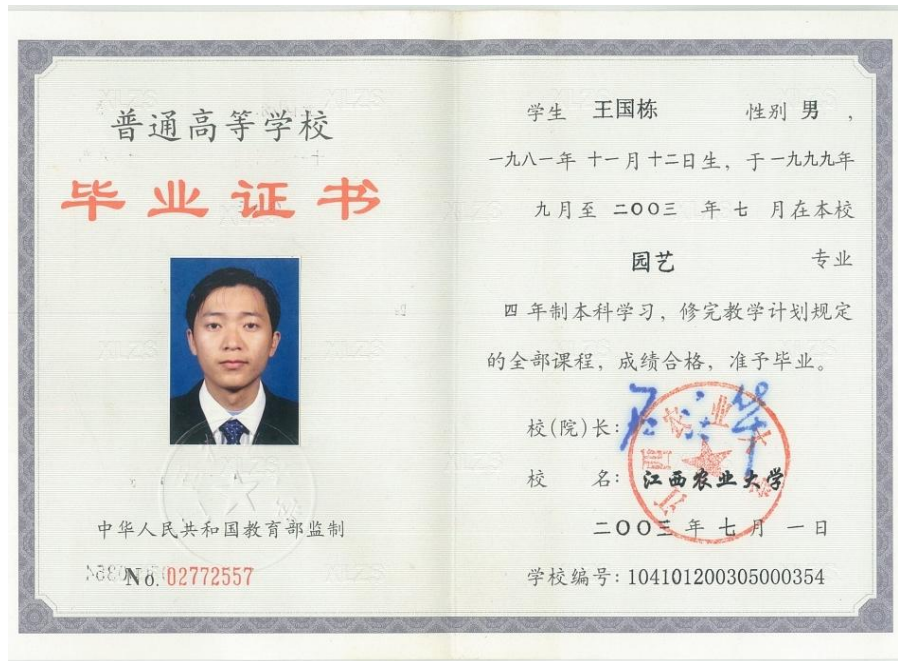 普通高等学校
毕业证书
中华人民共和国教育部监制
No. 02772557
学生 王国栋 性别 男 ，
一九八一年 十一月 十二日生，于一九九九年
九月至 二〇〇三 年 七 月在本校
园艺 专业
四 年制本科学习，修完教学计划规定
的全部课程，成绩合格，准予毕业。
校(院)长：
校 名：江西农业大学
二〇〇三 年 七 月 一 日
学校编号：104101200305000354